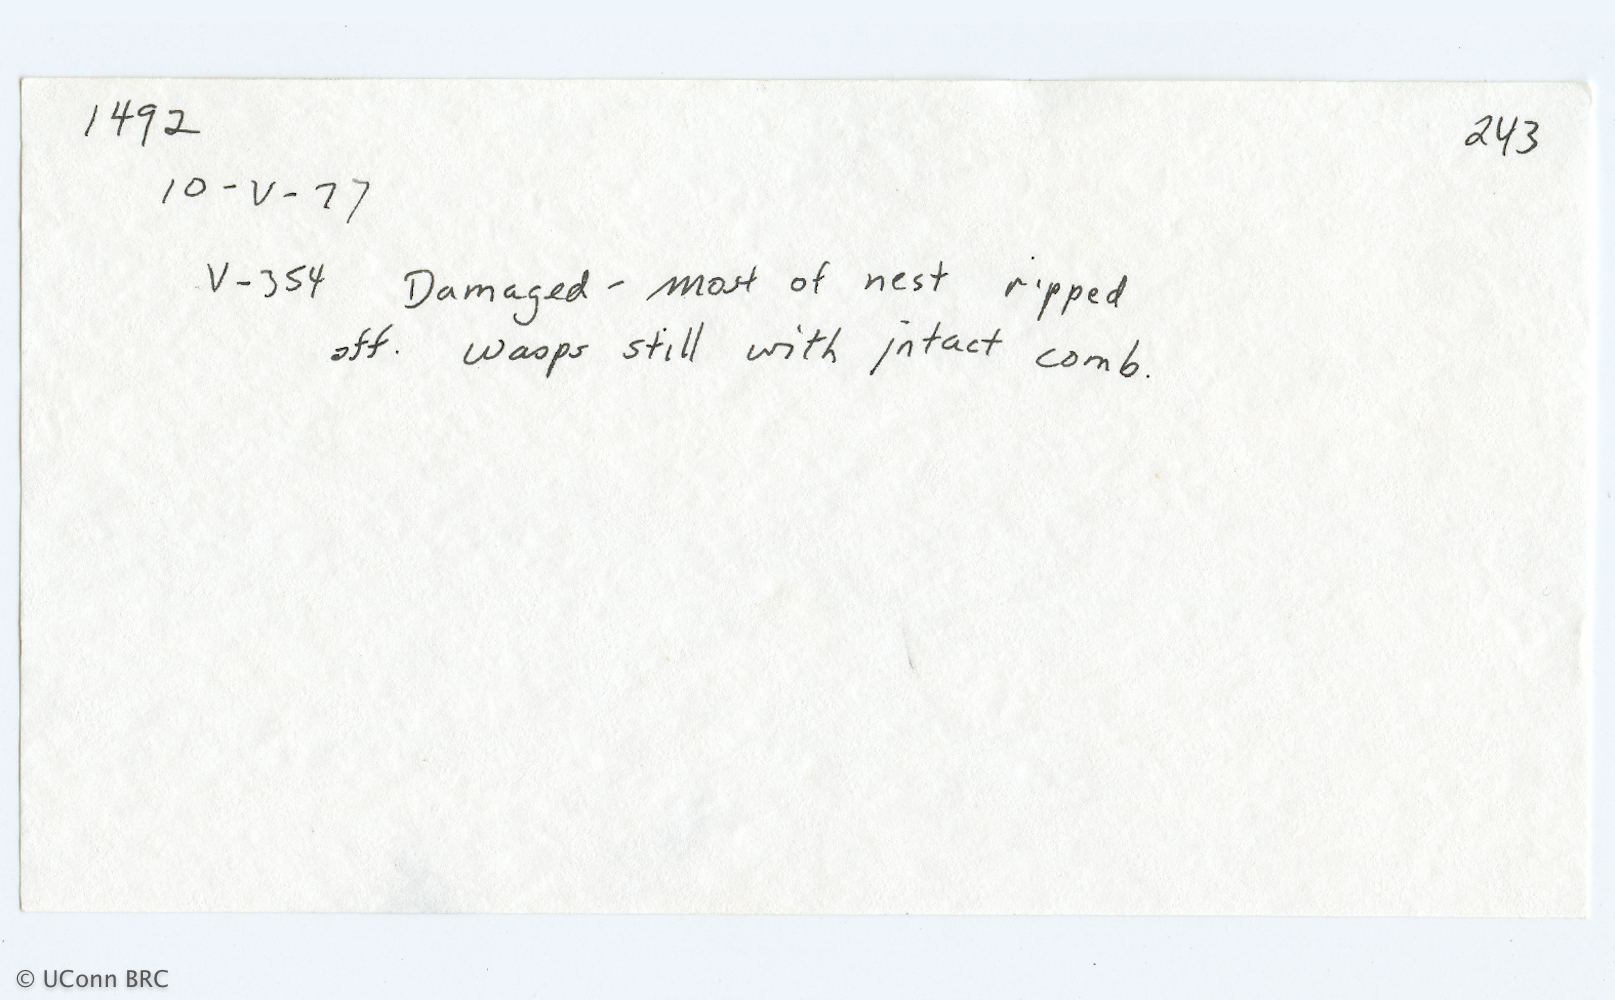 1492
243
10-V-77
V-354 Damaged - most of nest ripped
off. Wasps still with intact comb.
© UConn BRC